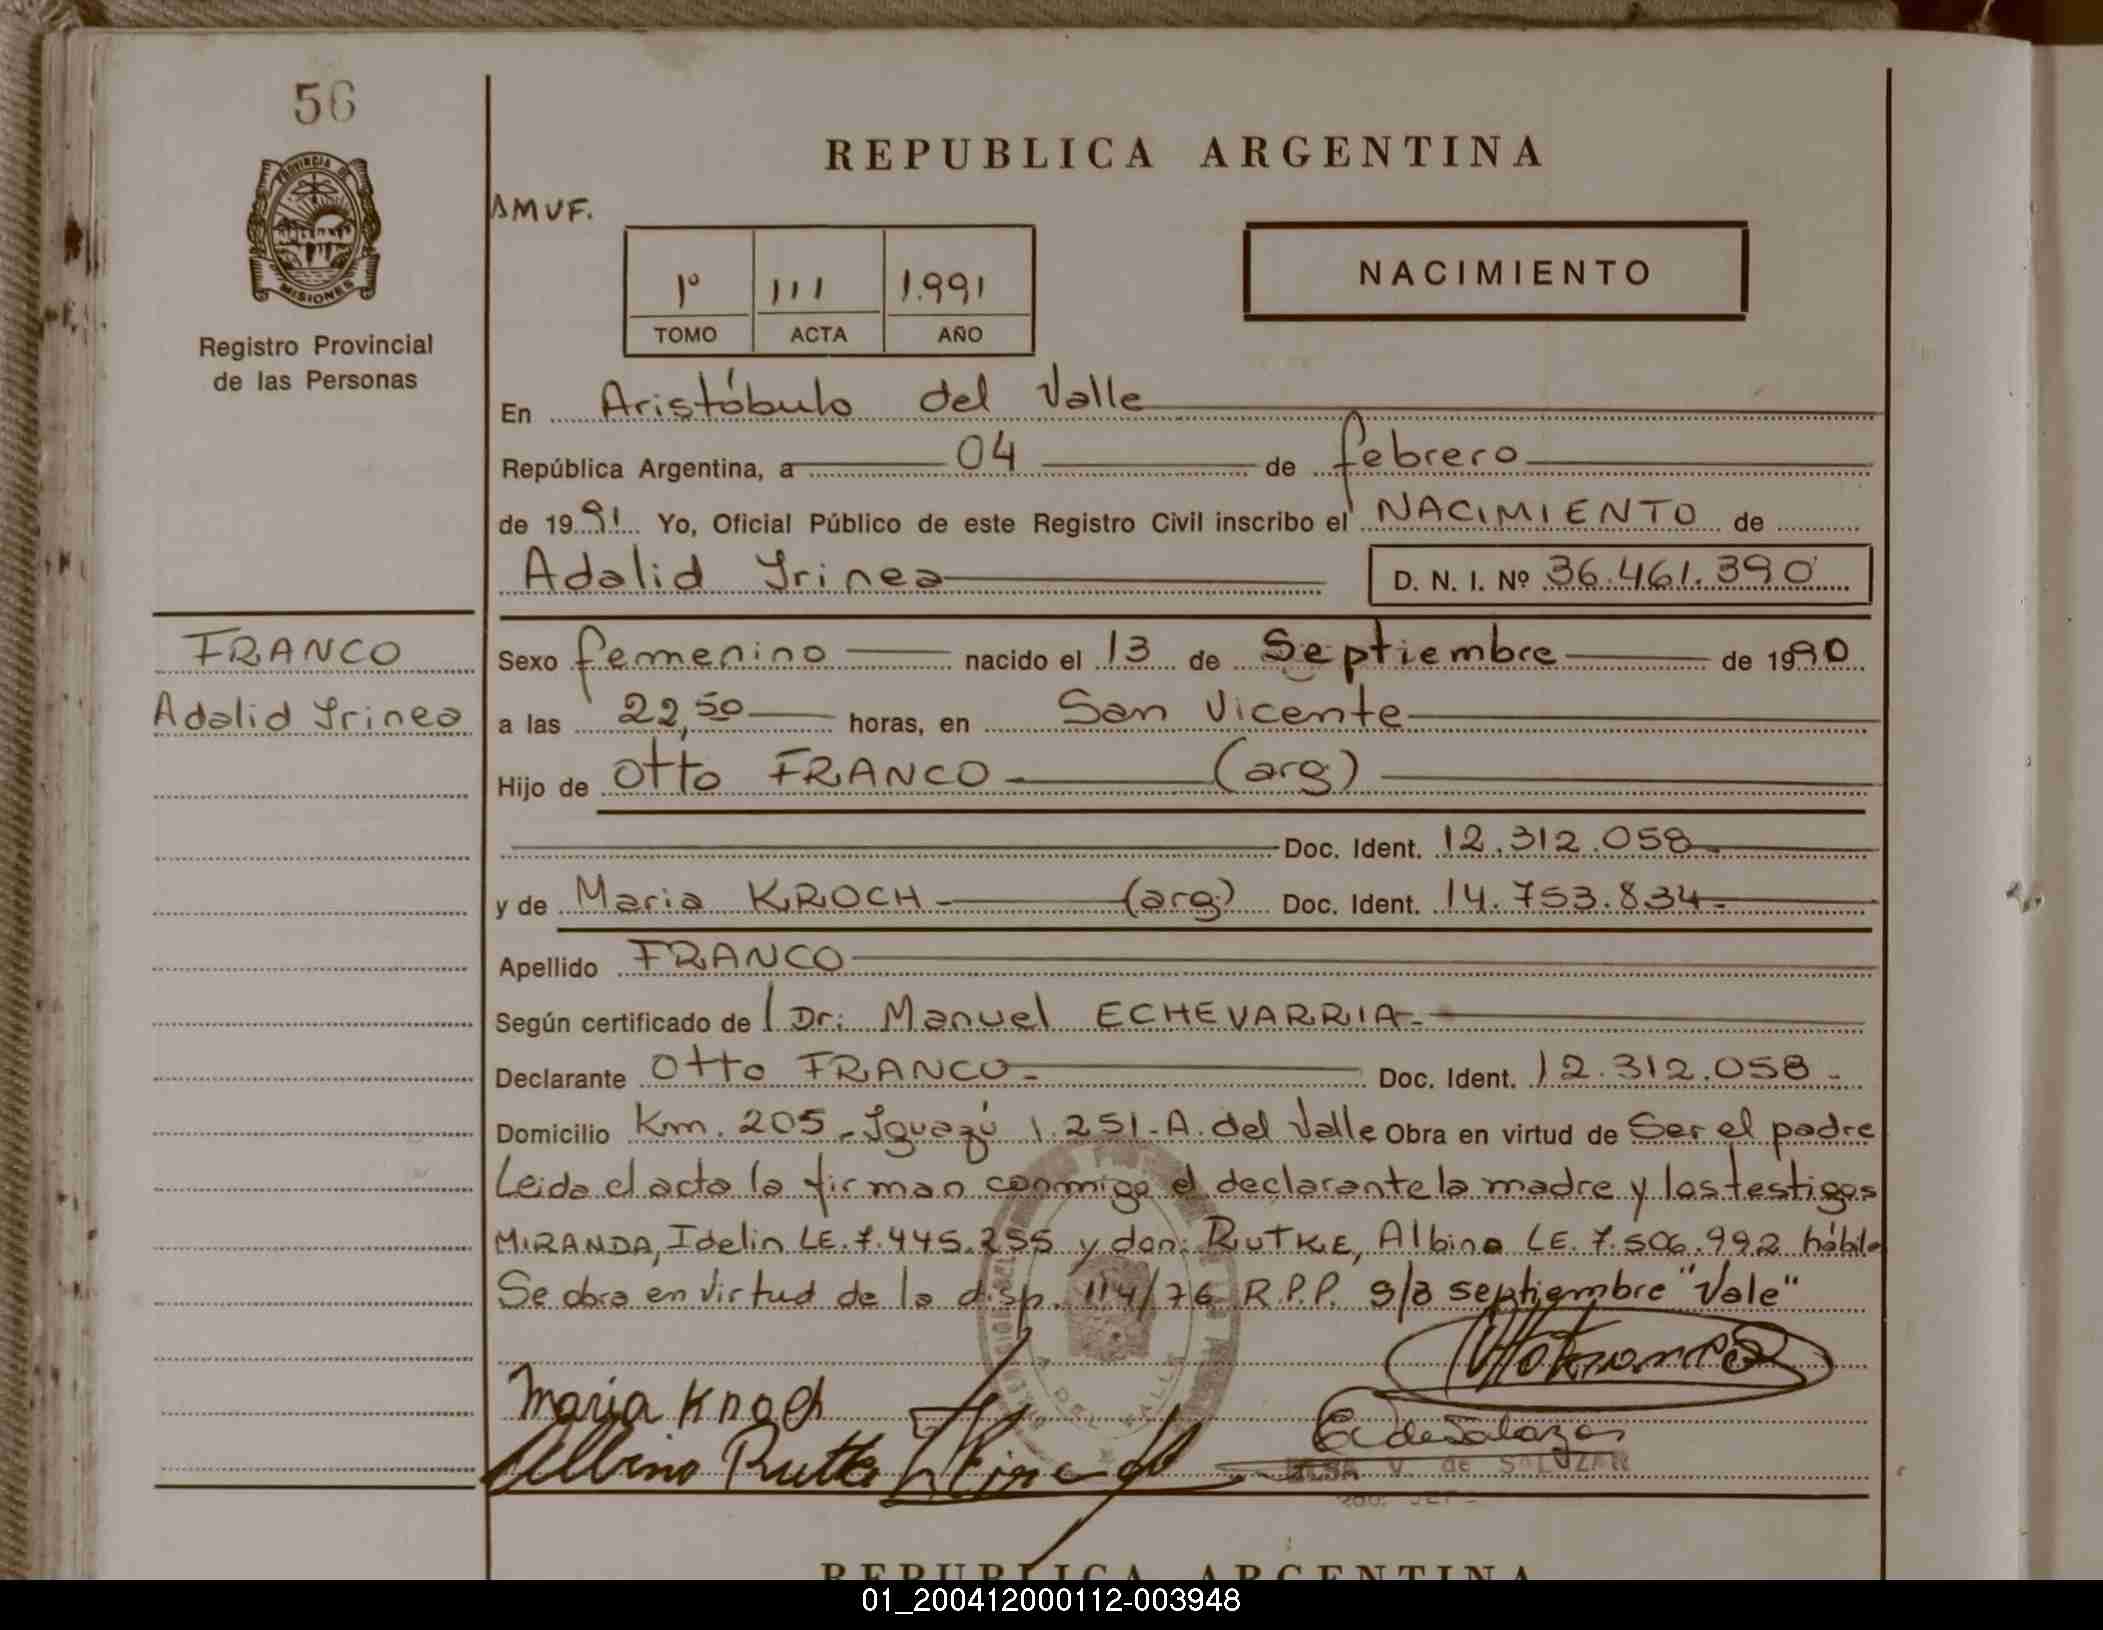 56
PROVINCIA DE
MISIONES
Registro Provincial
de las Personas
REPUBLICA ARGENTINA
AMVF.
1º 111 1.991
TOMO ACTA AÑO
NACIMIENTO
En Aristóbulo del Valle
República Argentina, a 04 de febrero
de 1991 Yo, Oficial Público de este Registro Civil inscribo el NACIMIENTO de
Adalid Yrinea D. N. I. Nº 36.461.390
FRANCO
Adalid Yrinea
Sexo femenino nacido el 13 de Septiembre de 1990
a las 22,50 horas, en San Vicente
Hijo de Otto FRANCO (arg)
Doc. Ident. 12.312.058
y de Maria KROCH (arg) Doc. Ident. 14.753.834
Apellido FRANCO
Según certificado de Dr: Manuel ECHEVARRIA
Declarante Otto FRANCO Doc. Ident. 12.312.058
Domicilio Km. 205 - Iguazú 1.251 - A. del Valle Obra en virtud de Ser el padre
Leida el acta la firman conmigo el declarante la madre y los testigos
MIRANDA, Idelin LE. 7.445.255 y don: RUTKE, Albino LE. 7.506.992 hábil
Se obra en virtud de la disp. 114/76 R.P.P. S/a septiembre "Vale"
Maria Knoch
Albino Rutke
E. de Salazar
V. de SALAZAR
REPUBLICA ARGENTINA
01_200412000112-003948